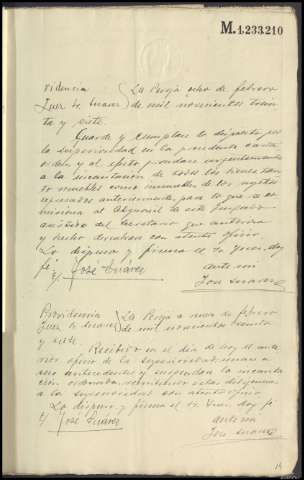 M.1.233.210
videncia La Rioja ocho de febrero
Juez Sr. Suarez de mil novecientos trein
ta y siete.
Guarde y cumplase lo dispuesto por
la Superioridad en la precedente carta
orden y al efecto procedase urgentemente
a la incautación de todos los bienes tan
to muebles como inmuebles de los sujetos
expresados anteriormente, para lo que se co
misiona al Alguacil de este Juzgado
asistido del Secretario que autoriza
y hecho devuelvan con atento oficio
Lo dispuso y firma el Sr. Juez, doy
fé
José Suarez ante mi
Providencia La Rioja a nueve de febrero
Juez Sr. Suarez de mil novecientos treinta
y siete.
Recibido en el día de hoy el ante
rior oficio de la superioridad, unase a
sus antecedentes y suspendase la incauta
ción ordenada, remitiendo estas diligencias
a la superioridad con atento oficio
Lo dispuso y firma el Sr. Juez doy fé
José Suarez ante mi